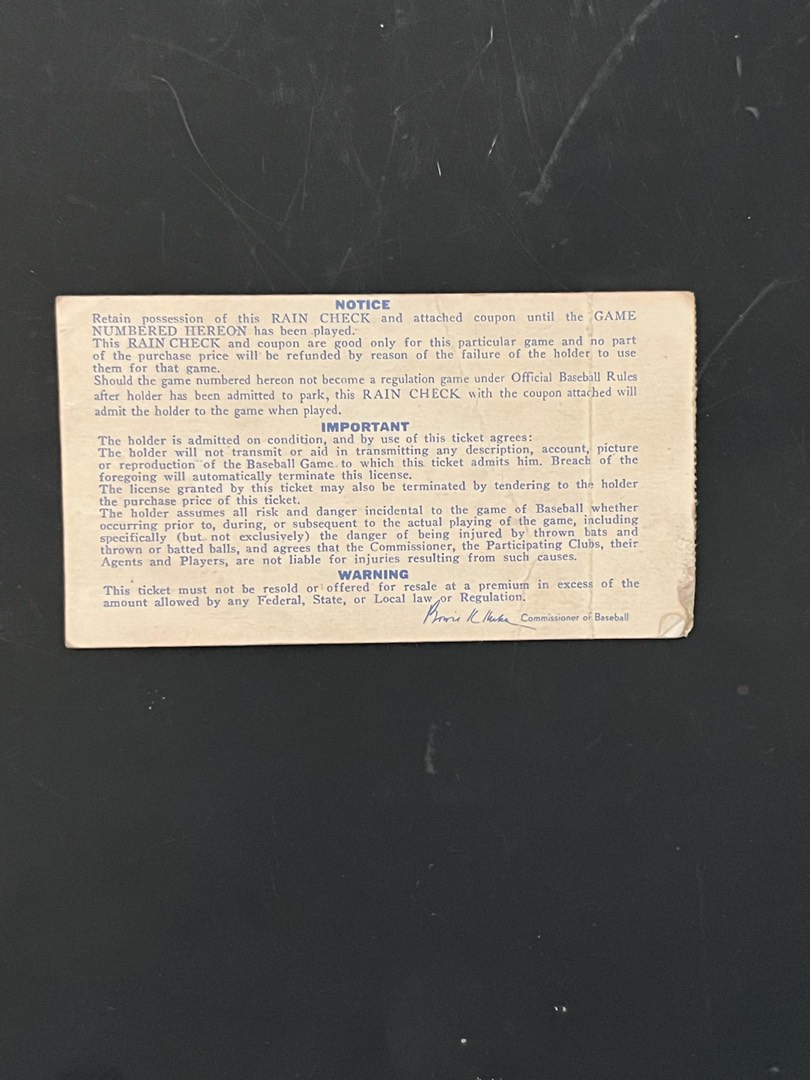 NOTICE
Retain possession of this RAIN CHECK and attached coupon until the GAME
NUMBERED HEREON has been played.
This RAIN CHECK and coupon are good only for this particular game and no part
of the purchase price will be refunded by reason of the failure of the holder to use
them for that game.
Should the game numbered hereon not become a regulation game under Official Baseball Rules
after holder has been admitted to park, this RAIN CHECK with the coupon attached will
admit the holder to the game when played.
IMPORTANT
The holder is admitted on condition, and by use of this ticket agrees:
The holder will not transmit or aid in transmitting any description, account, picture
or reproduction of the Baseball Game to which this ticket admits him. Breach of the
foregoing will automatically terminate this license.
The license granted by this ticket may also be terminated by tendering to the holder
the purchase price of this ticket.
The holder assumes all risk and danger incidental to the game of Baseball whether
occurring prior to, during, or subsequent to the actual playing of the game, including
specifically (but not exclusively) the danger of being injured by thrown bats and
thrown or batted balls, and agrees that the Commissioner, the Participating Clubs, their
Agents and Players, are not liable for injuries resulting from such causes.
WARNING
This ticket must not be resold or offered for resale at a premium in excess of the
amount allowed by any Federal, State, or Local law or Regulation.
Bowie K Kuhn Commissioner of Baseball